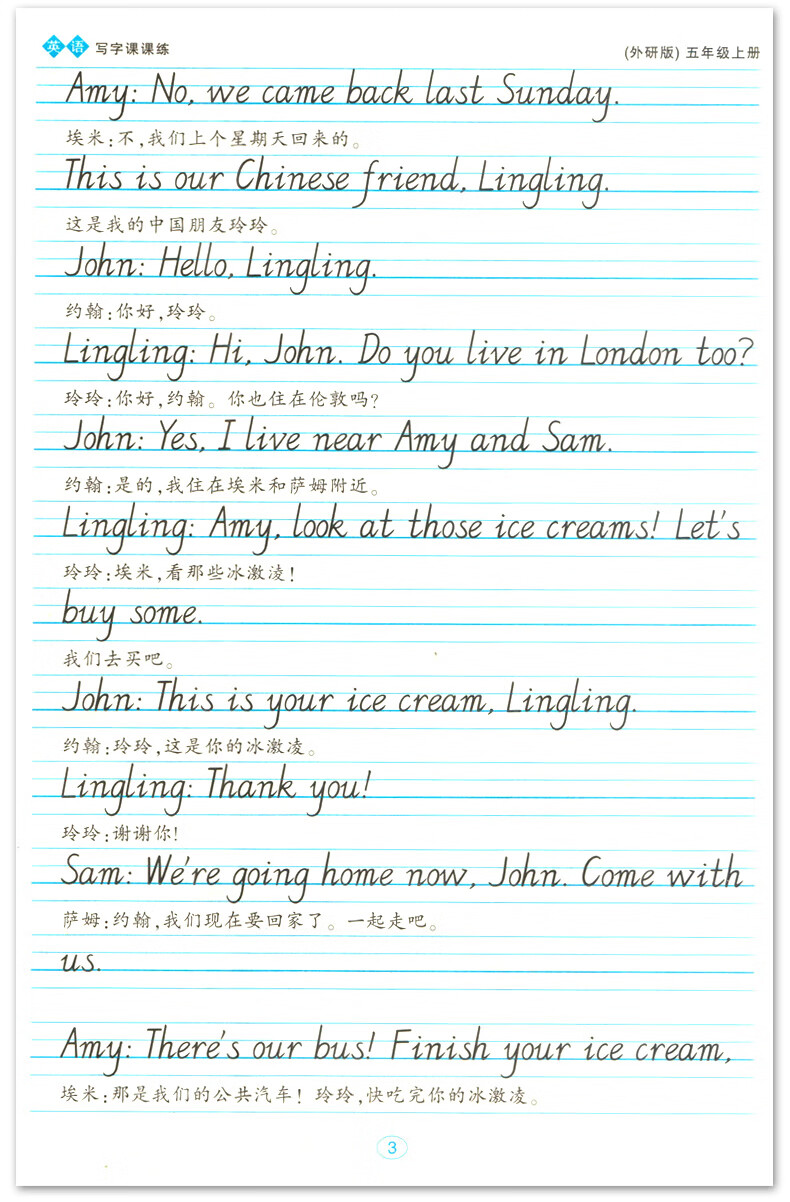 英语 写字课课练
(外研版) 五年级上册
Amy: No, we came back last Sunday.
埃米:不,我们上个星期天回来的。
This is our Chinese friend, Lingling.
这是我的中国朋友玲玲。
John: Hello, Lingling.
约翰:你好,玲玲。
Lingling: Hi, John. Do you live in London too?
玲玲:你好,约翰。你也住在伦敦吗?
John: Yes, I live near Amy and Sam.
约翰:是的,我住在埃米和萨姆附近。
Lingling: Amy, look at those ice creams! Let's
玲玲:埃米,看那些冰激凌!
buy some.
我们去买吧。
John: This is your ice cream, Lingling.
约翰:玲玲,这是你的冰激凌。
Lingling: Thank you!
玲玲:谢谢你!
Sam: We're going home now, John. Come with
萨姆:约翰,我们现在要回家了。一起走吧。
us.
Amy: There's our bus! Finish your ice cream,
埃米:那是我们的公共汽车!玲玲,快吃完你的冰激凌。
3